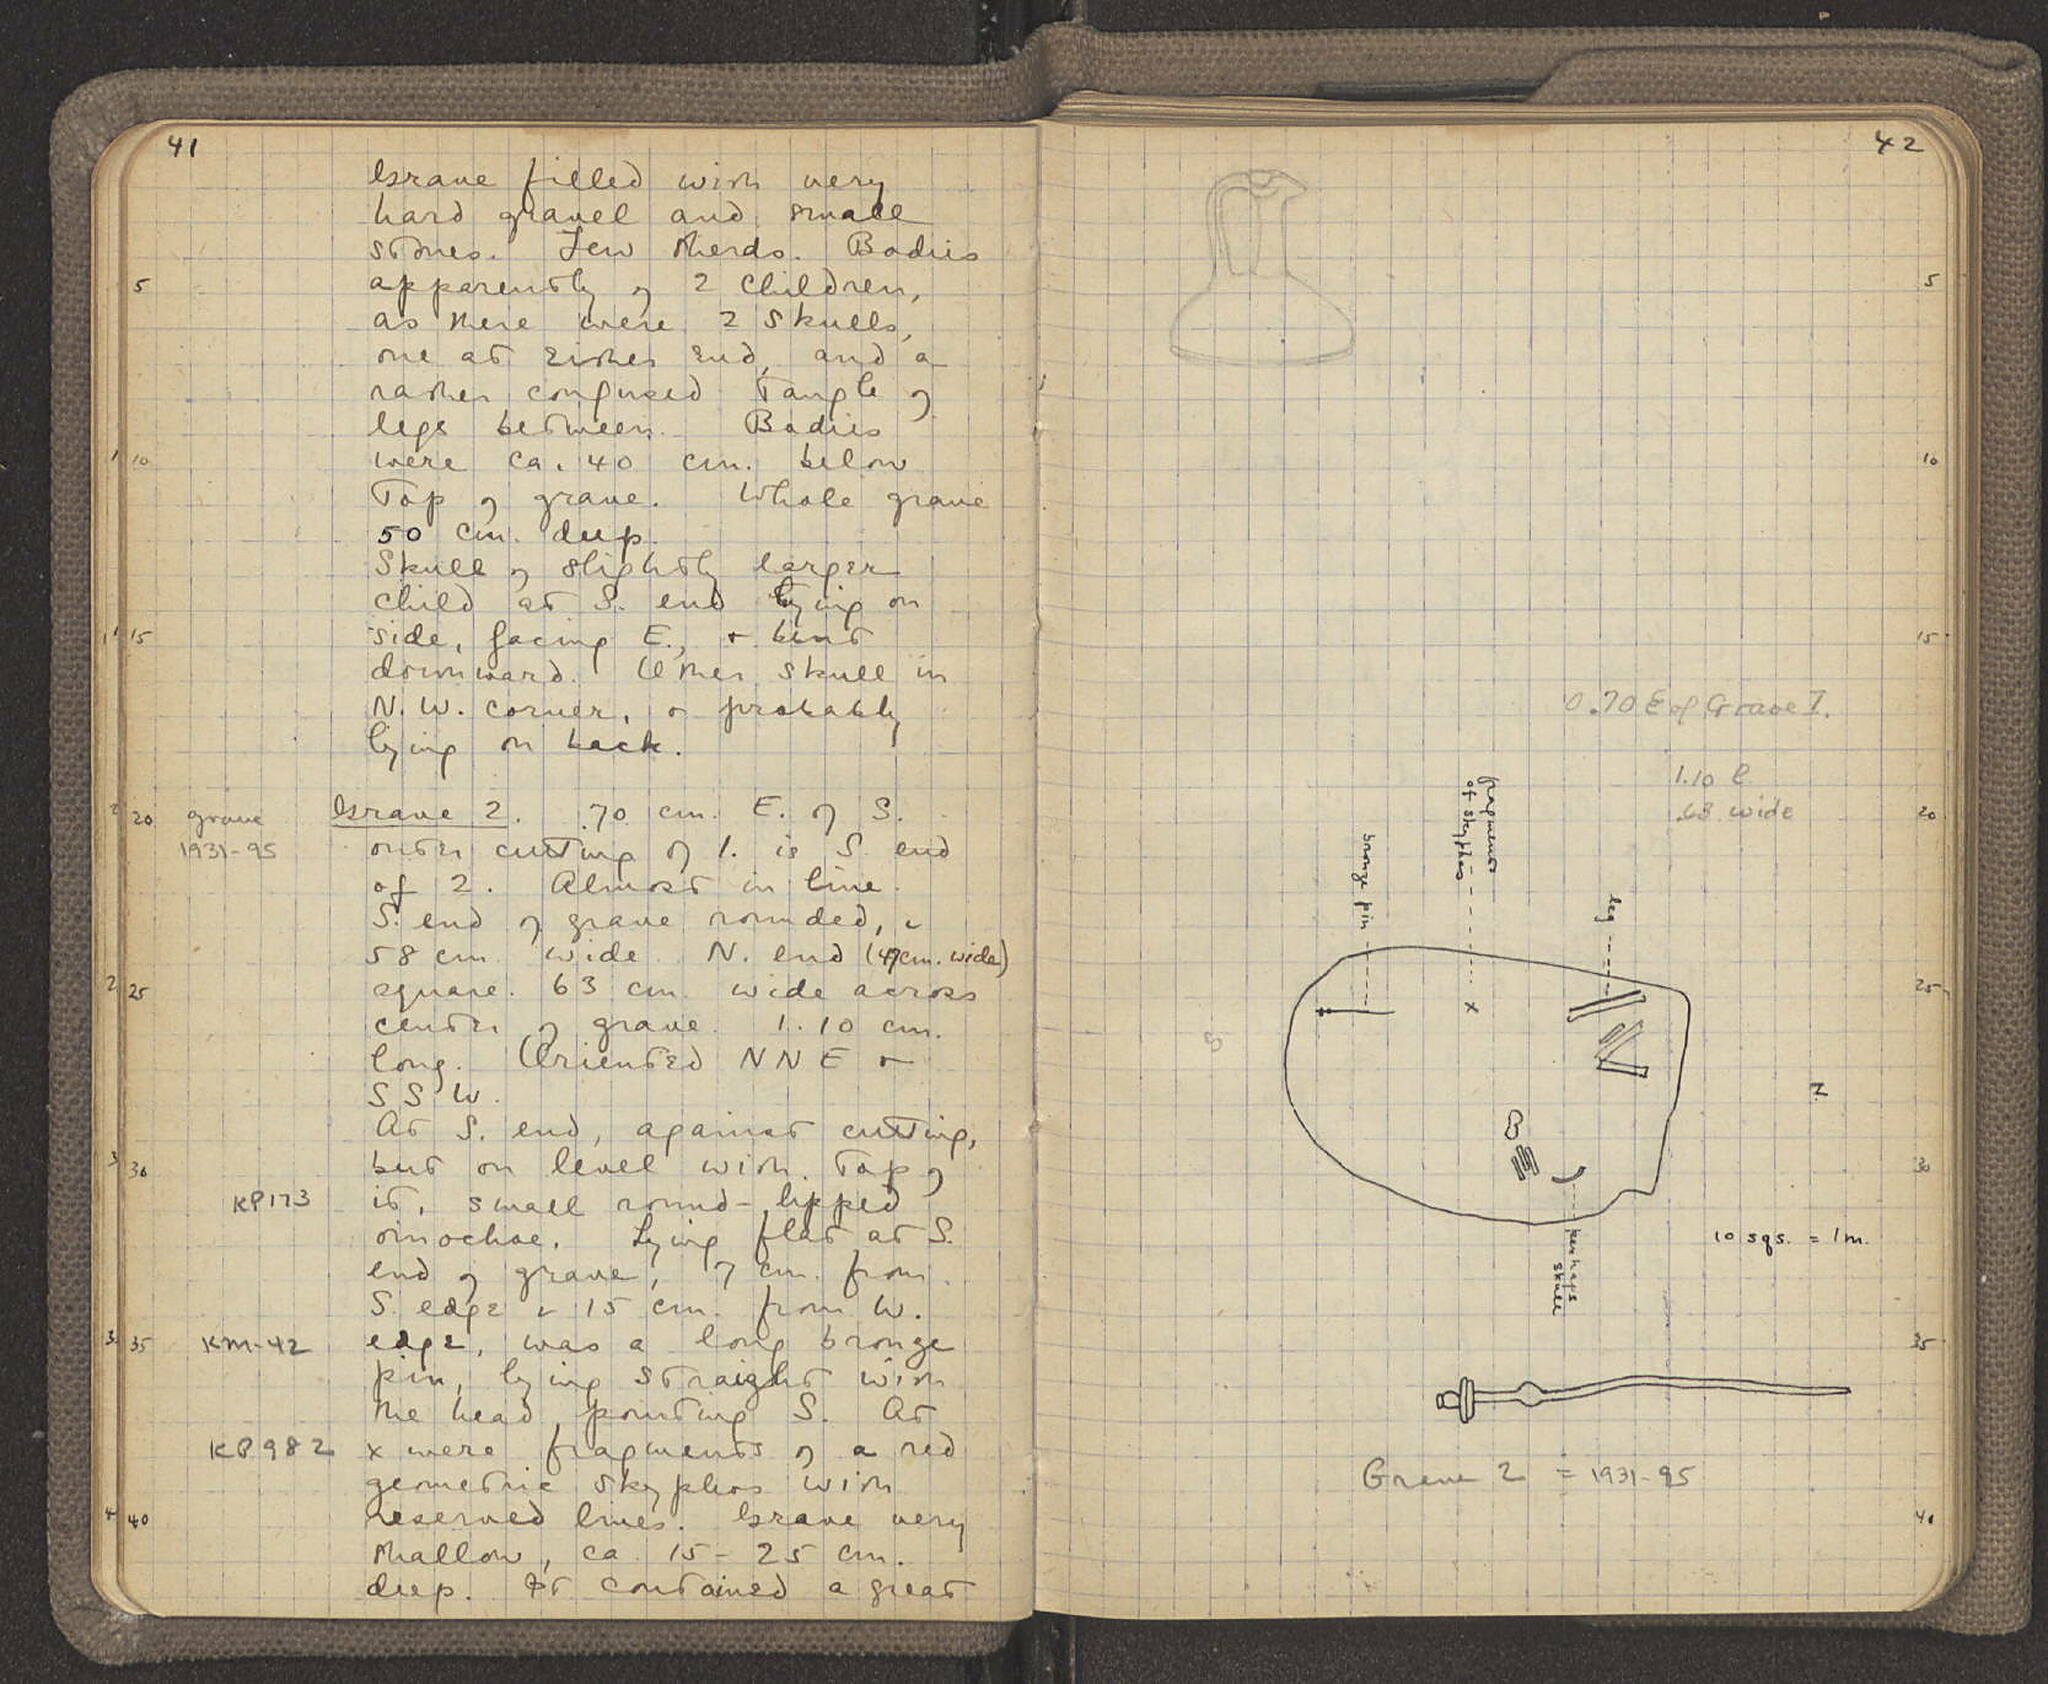 41
Grave filled with very
hard gravel and small
stones. Few sherds. Bodies
5 apparently of 2 children,
as there were 2 skulls,
one at either end, and a
rather confused tangle of
legs between. Bodies
10 were ca. 40 cm. below
top of grave. Whole grave
50 cm. deep.
Skull of slightly larger
child at S. end lying on
15 side, facing E., + bent
downward. Other skull in
N.W. corner, + probably
lying on back.
20 grave Grave 2. .70 cm. E. of S.
1931-95 outer cutting of 1. is S. end
of 2. Almost in line.
S. end of grave rounded, +
58 cm. wide. N. end (47cm. wide)
25 square. 63 cm. wide across
center of grave. 1.10 cm.
long. Oriented NNE +
SSW.
At S. end, against cutting,
30 but on level with top of
KP173 it, small round-lipped
oinochoe. Lying flat at S.
end of grave, 7 cm. from
S. edge + 15 cm. from W.
35 KM-42 edge, was a long bronze
pin, lying straight with
the head pointing S. At
KP982 x were fragments of a red
geometric skyphos with
40 reserved lines. Grave very
shallow, ca. 15-25 cm.
deep. It contained a great
42
5
10
15
0.70 E of Grave I.
1.10 l
.63 wide
20
fragments
of skyphos
bronze pin
leg
25
x
N
30
10 sqs. = 1m.
perhaps
skull
35
Grave 2 = 1931-95
40